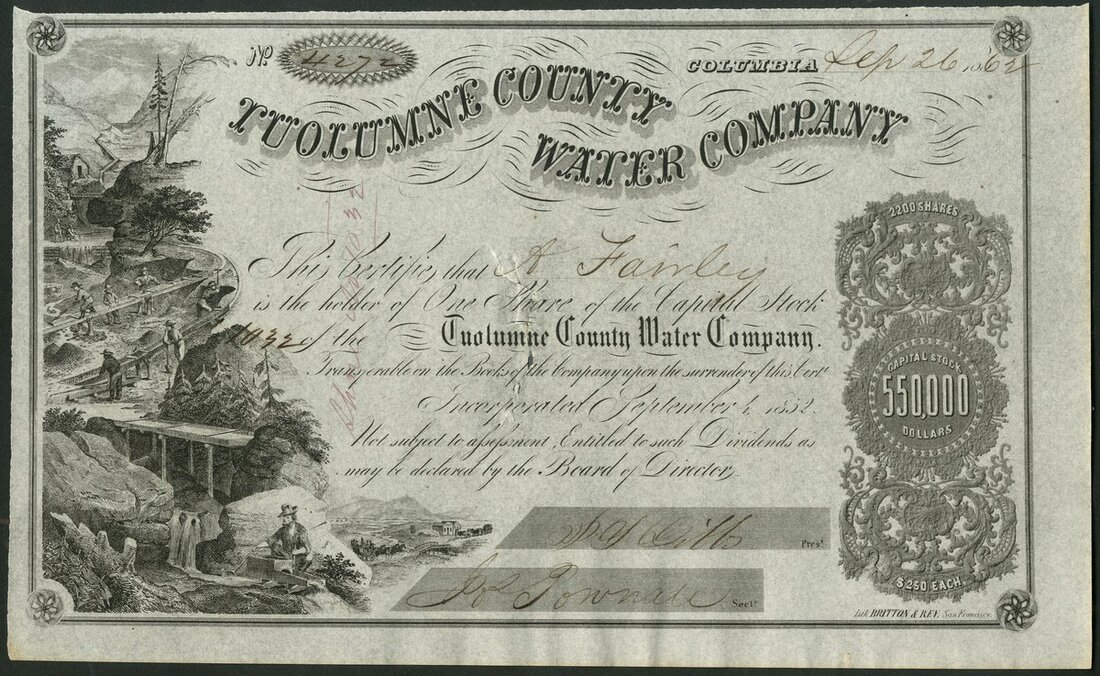 No 4272
COLUMBIA Sep 26 1862
TUOLUMNE COUNTY
WATER COMPANY
This Certifies, that A Fairley
is the holder of One Share of the Capital Stock
1032 of the Tuolumne County Water Company.
Transferable on the Books of the Company upon the surrender of this Cert.
Incorporated September 4, 1852.
Not subject to assessment, Entitled to such Dividends as
may be declared by the Board of Directors,
Prest.
Jos Pownall
Secty.
2200 SHARES
CAPITAL STOCK
550,000
DOLLARS
$250 EACH.
Lith. BRITTON & REY. San Francisco.
1032